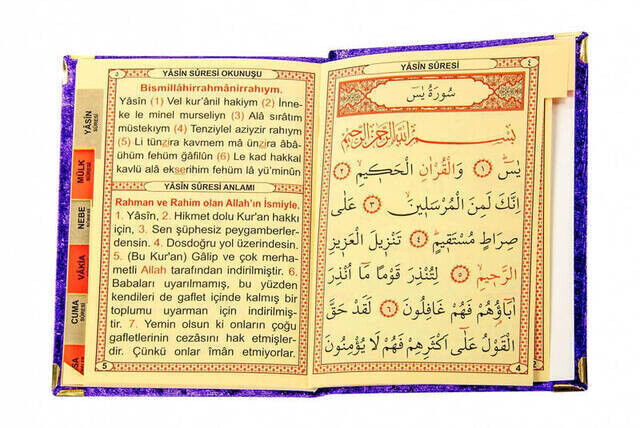 YÂSİN SÛRESİ OKUNUŞU
Bismillâhirrahmânirrahıym.
Yâsîn (1) Vel kur'ânil hakiym (2) İnne-
ke le minel murseliyn (3) Alâ sırâtım
müstekıym (4) Tenziylel aziyzir rahıym
(5) Li tünzira kavmem mâ ünzira âbâ-
ühüm fehüm ğâfilûn (6) Le kad hakkal
kavlü alâ ekserihim fehüm lâ yü'minûn
YÂSİN SÛRESİ ANLAMI
Rahman ve Rahim olan Allah'ın İsmiyle.
1. Yâsîn, 2. Hikmet dolu Kur'an hakkı
için, 3. Sen şüphesiz peygamberler-
densin. 4. Dosdoğru yol üzerindesin.
5. (Bu Kur'an) Gâlip ve çok merha-
metli Allah tarafından indirilmiştir. 6.
Babaları uyarılmamış, bu yüzden
kendileri de gaflet içinde kalmış bir
toplumu uyarman için indirilmiş-
tir. 7. Yemin olsun ki onların çoğu
gafletlerinin cezasını hak etmişler-
dir. Çünkü onlar îmân etmiyorlar.
5
YÂSİN SÛRESİ
MÜLK SÛRESİ
NEBE
VÂKIA
CUMA SÛRESİ
YÂSİN SÛRESİ
٤
سُورَةُ يٰسٓ
بِسْمِ اللّٰهِ الرَّحْمٰنِ الرَّحِيمِ
يٰسٓ ﴿١﴾ وَالْقُرْاٰنِ الْحَكِيمِ ﴿٢﴾
اِنَّكَ لَمِنَ الْمُرْسَلِينَ ﴿٣﴾ عَلٰى
صِرَاطٍ مُسْتَقِيمٍ ﴿٤﴾ تَنْزِيلَ الْعَزِيزِ
الرَّحِيمِ ﴿٥﴾ لِتُنْذِرَ قَوْمًا مَٓا اُنْذِرَ
اٰبَٓاؤُهُمْ فَهُمْ غَافِلُونَ ﴿٦﴾ لَقَدْ حَقَّ
الْقَوْلُ عَلٰٓى اَكْثَرِهِمْ فَهُمْ لَا يُؤْمِنُونَ
4
2